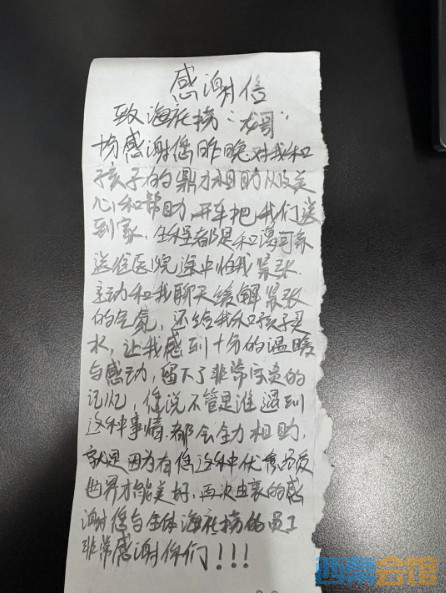 感谢信
致海底捞“龙哥”
感谢您昨晚对我和
孩子的鼎力相助以及关
心和帮助，开车把我们送
到家.
送往医院途中怕我紧张.
主动和我聊天缓解紧张
的气氛，还给我和孩子买
水，让我感到十分的温暖
与感动，留下了非常宝贵的
记忆，您说不管是谁遇到
这种事情都会全力相助，
就是因为有您这种优秀品质
世界才能美好，再次由衷的感
谢您与全体海底捞的员工
非常感谢你们！！！
四季会馆